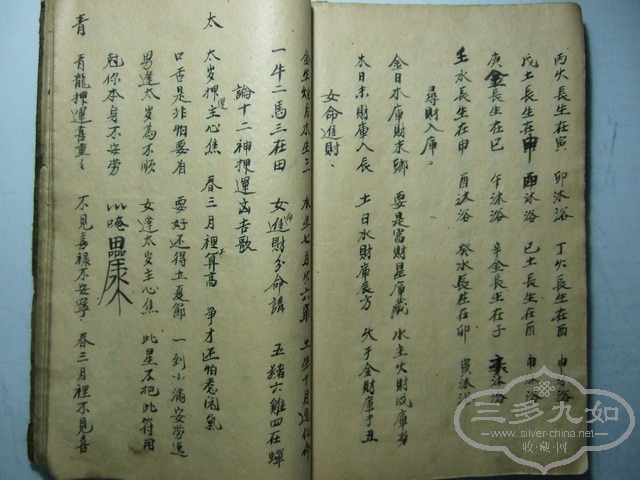 丙火長生在寅 卯沐浴 丁火長生在酉 申沐浴
戊土長生在申 酉沐浴 己土長生在酉 申沐浴
庚金長生在巳 午沐浴 辛金長生在子 亥沐浴
壬水長生在申 酉沐浴 癸水長生在卯 寅沐浴
尋財入庫。
金日木庫財未鄉 要是富財星庫藏 水主火財戌庫
木日未財庫入辰 土日水財庫辰方 火于金財庫于丑
女命進財、
金生 月木生三 水生七月火六 土生十月進
一牛二馬三在田 女進財分命講 五豬六雞四在蟬
論十二神押運凶吉歌
太 太岁押运主心焦 春三月裡不算高 爭才还怕惹闲氣
口舌是非怕要有 要好还得立夏節 一到小滿安劳逸
男逢太岁為不順 女逢太岁主心焦 此星不把此符用
冠你本身不安劳
青 青龍押運喜重重 不見喜祿不安寧 春三月裡不見喜
三多九如
www.silver-china.net
收·藏·网